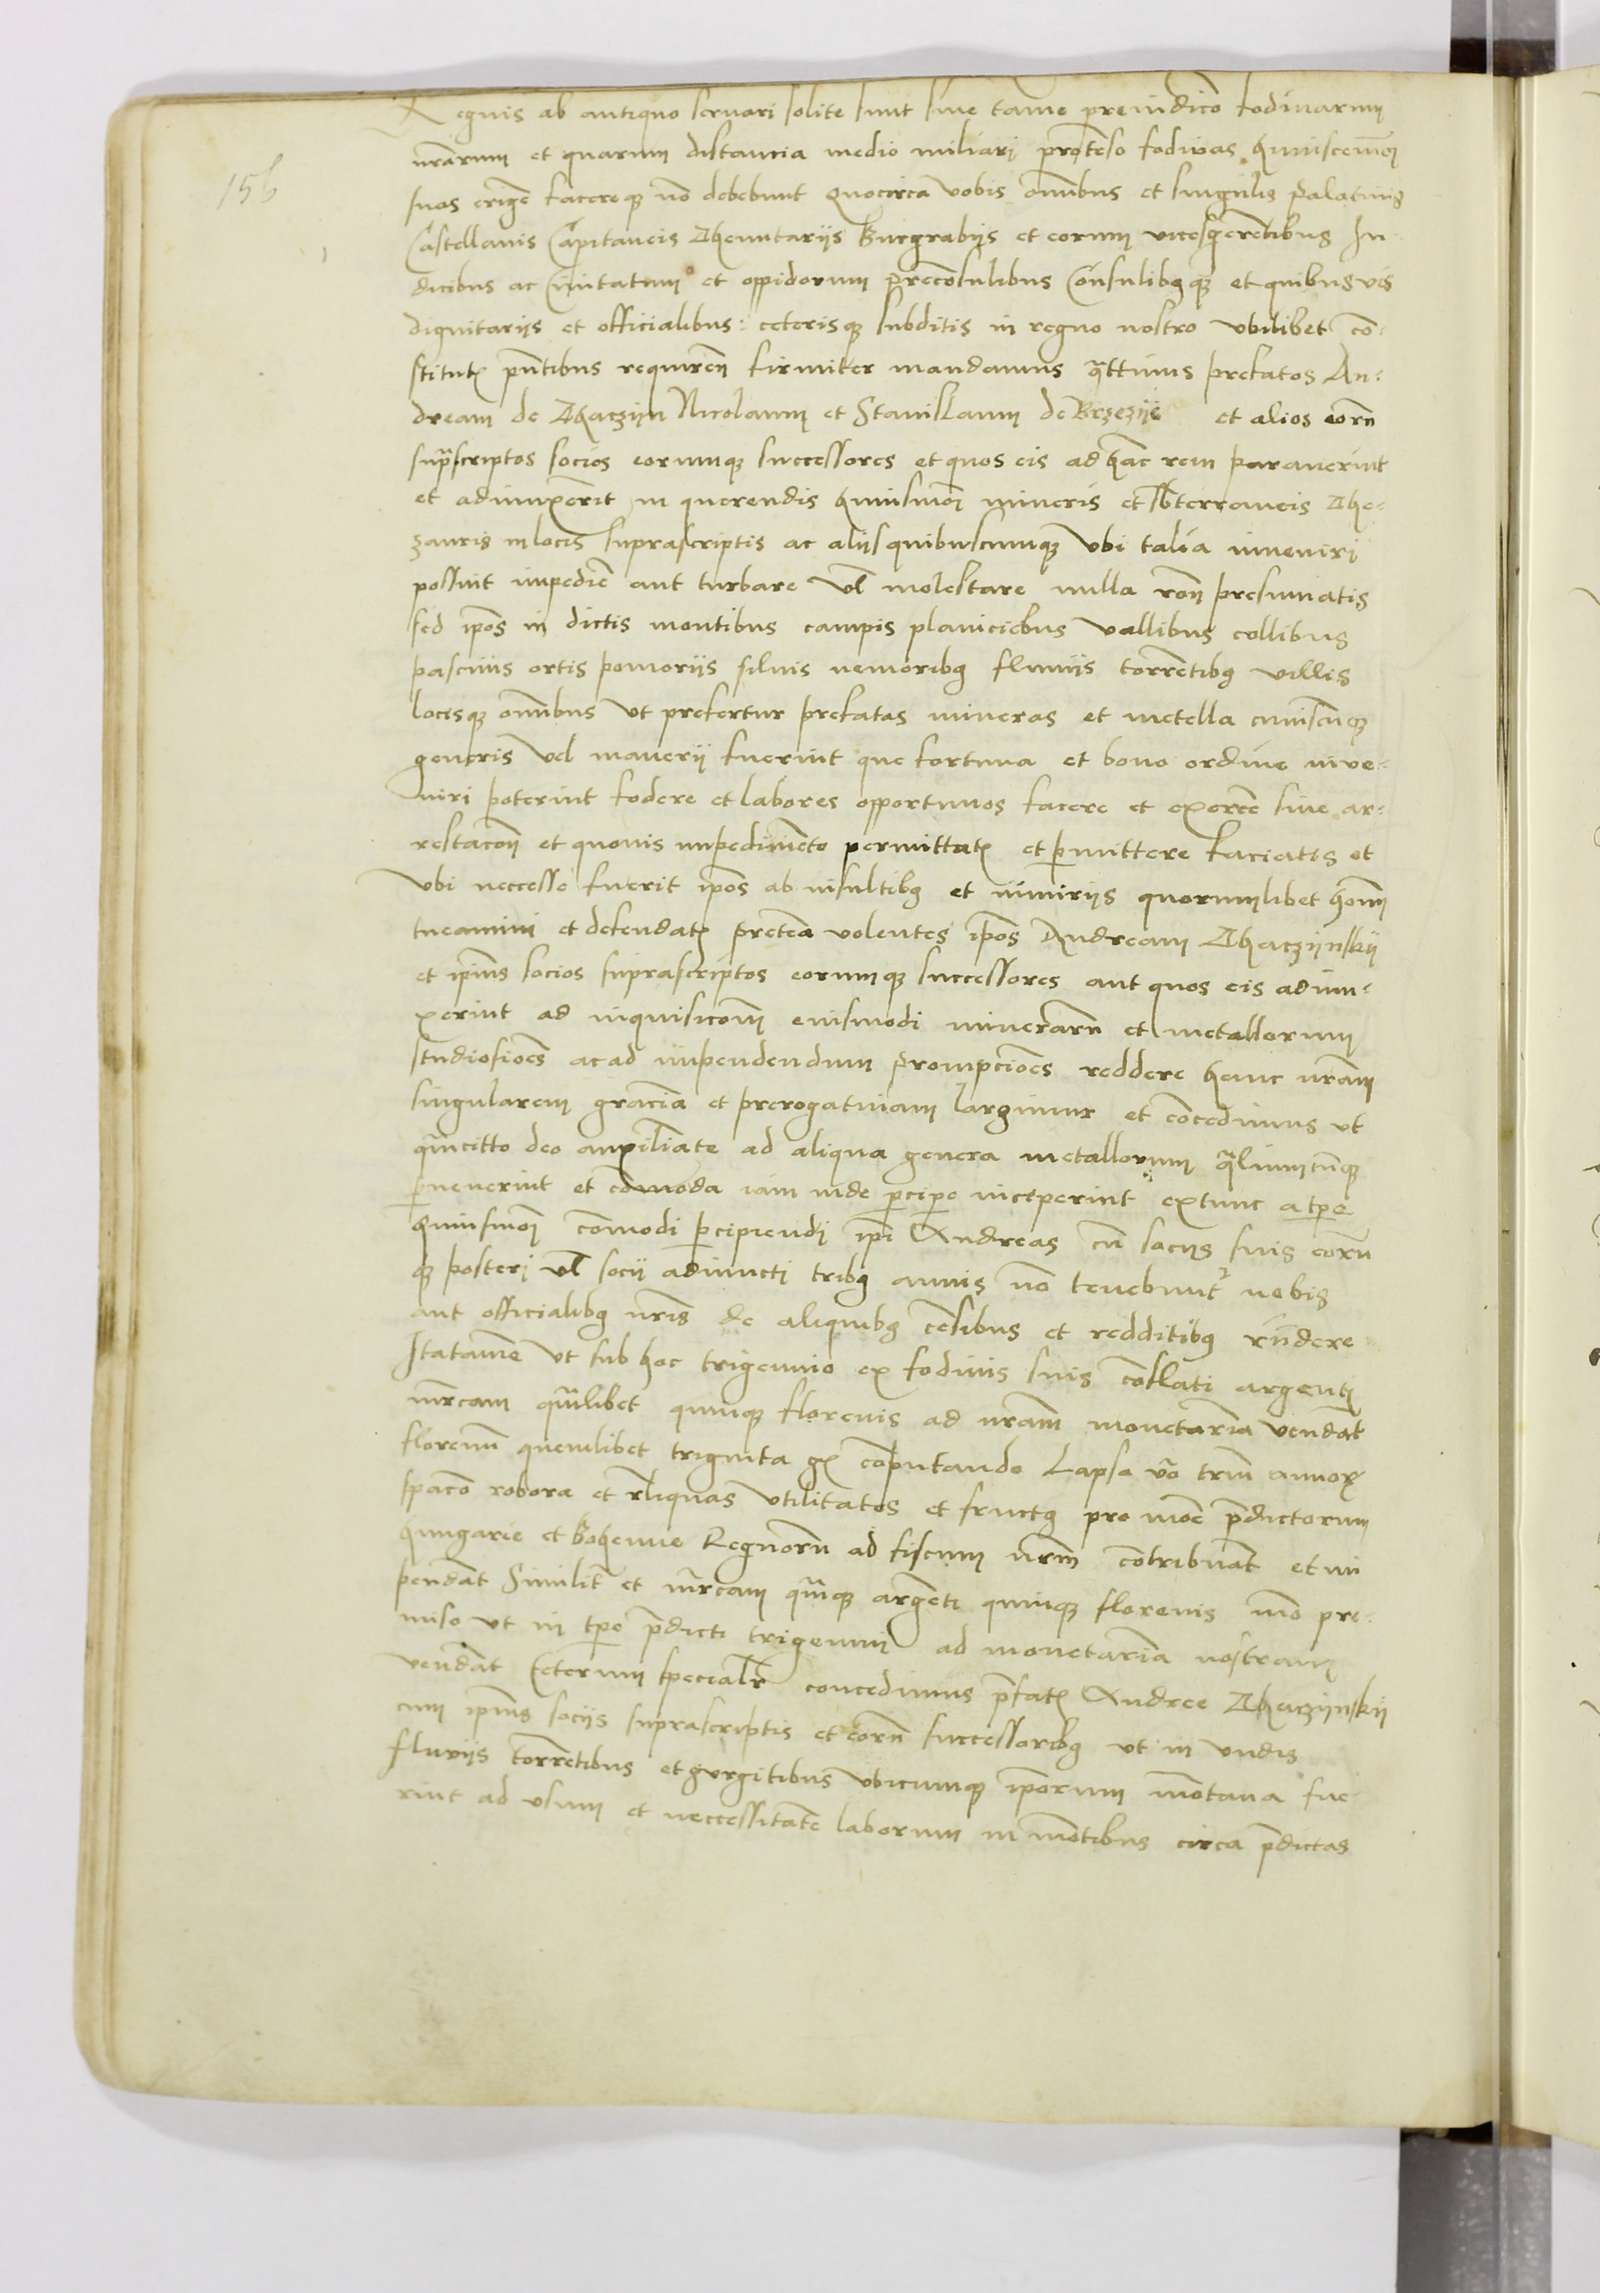 156
Regnis ab antiquo servari solite sunt sine tame preiudico fodinarum
nrarum et quarum distancia medio miliari protenso fodinas huiuscemodi
suas erige facereq no debebunt Quocirca vobis omibus et singulis palatinis
Castellanis Capitaneis Thenutariis Burgrabiis et eorum vicesgerentibus Iu-
dicibus ac Civitatum et oppidorum preconsulibus Consulibusq et quibusvis
dignitariis et officialibus: ceterisq subditis in regno nostro ubilibet co-
stitutis pntibus requiren firmiter mandamus qttinus prefatos An-
dream de Thaczijn Nicolaum et Stanislaum de Brzezije et alios eorn
suprascriptos socios eorumq successores et quos eis ad hac rem paraverint
et adiunxerit in querendis huiusmoi mineris et sbterraneis The-
zauris in locis suprascriptis ac aliis quibuscumq ubi talia inveniri
possint impedie aut turbare vl molestare nulla ron presumatis
sed ipos in dictis montibus campis planiciebus vallibus collibus
pascuis ortis pomoriis silvis nemoribq fluviis torretibq villis
locisq omibus ut prefertur prefatas mineras et metella cuiuscuq
generis vel manerii fuerint que fortuna et bono ordine inve-
niri poterint fodere et labores opportunos facere et exerce sine ar-
restacon et quovis impedimeto permittatis et pmittere faciatis et
ubi neccesse fuerit ipos ab insultibq et iniuriis quorumlibet hom
tueamini et defendatis preterea volentes ipos Andream Thaczijnskij
et ipius socios suprascriptos eorumq successores aut quos eis adiun-
xerint ad inquisicom eiusmodi minerarn et metallorum
studiosioes ac ad impendendum prompcioes reddere hanc nram
singularem gracia et prerogativam largimur et concedimus ut
qmcitto deo auxiliate ad aliqua genera metallorum qliumcuq
pvenerint et comoda iam inde pcipe inceperint extunc a tpe
huiusmoi comodi pcipiendi ipi Andreas cu sociis suis eoru
q posteri vl socii adiuncti tribq annis no tenebunt nobis
aut officialibq nris de aliquibq cesibus et redditibq rndere
Itatame ut sub hoc trigennio ex fodinis suis conflati argenti
mrcam qmlibet quinq florenis ad nram monetaria vendat
florenu quemlibet triginta gs computando Lapso vo trium annor
spaco robora et rliquas utilitates et fructq pro moe pdictorum
hungarie et Bohemie Regnoru ad fiscum nrm contribuat et im
pendat Similit et mrcam qmq argeti quinq florenis mo pre-
miso ut in tpe pdicti trigenni ad monetaria nostram
vendat Ceterum specialr concedimus pfatis Andree Thaczijnskij
cum ipius sociis suprascriptis et eorn successoribq ut in undis
fluviis torretibus et gurgitibus ubicumq iporum motana fue-
rint ad usum et neccessitate laborum in motibus circa pdictas